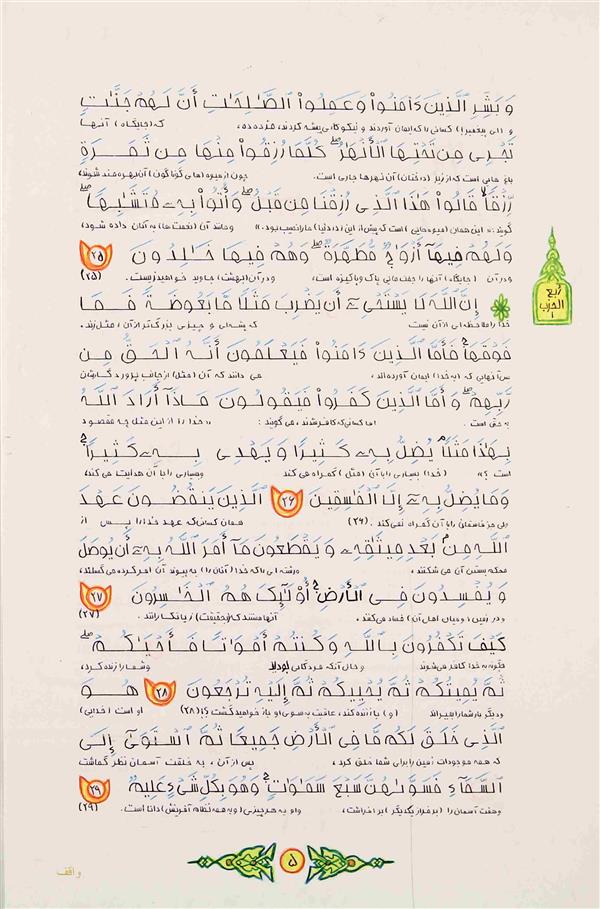 وَبَشِّرِ ٱلَّذِينَ ءَامَنُوا۟ وَعَمِلُوا۟ ٱلصَّٰلِحَٰتِ أَنَّ لَهُمْ جَنَّٰتٍ
و (ای پیغمبر) کسانی را که ایمان آوردند و نیکوکاری پیشه کردند، مژده ده، که (جایگاه) آنها
تَجْرِى مِن تَحْتِهَا ٱلْأَنْهَٰرُ ۖ كُلَّمَا رُزِقُوا۟ مِنْهَا مِن ثَمَرَةٍ
باغ هایی است که از زیر (درختان) آن نهرها جاری است. چون از میوه (های گوناگون) آن بهره مند شوند،
رِّزْقًا ۙ قَالُوا۟ هَٰذَا ٱلَّذِى رُزِقْنَا مِن قَبْلُ ۖ وَأُتُوا۟ بِهِۦ مُتَشَٰبِهًا ۖ
گویند: «این همان (میوه هایی) است که پیش از این (در دنیا) ما را نصیب بود.» و مانند آن (نعمت ها) به آنان داده شود،
وَلَهُمْ فِيهَآ أَزْوَٰجٌ مُّطَهَّرَةٌ ۖ وَهُمْ فِيهَا خَٰلِدُونَ ۲۵
و در آن (جایگاه) آنها را جفت هایی پاک و پاکیزه است، و در آن (بهشت) جاوید خواهند زیست. (۲۵)
ربع
الحزب
۱
إِنَّ ٱللَّهَ لَا يَسْتَحْىِۦٓ أَن يَضْرِبَ مَثَلًا مَّا بَعُوضَةً فَمَا
خدا را ملاحظه ای از آن نیست که پشه ای و چیزی بزرگ تر از آن، مثل زند.
فَوْقَهَا ۚ فَأَمَّا ٱلَّذِينَ ءَامَنُوا۟ فَيَعْلَمُونَ أَنَّهُ ٱلْحَقُّ مِن
پس آنهایی که (به خدا) ایمان آورده اند، می دانند که آن (مثل) از جانب پروردگارشان
رَّبِّهِمْ ۖ وَأَمَّا ٱلَّذِينَ كَفَرُوا۟ فَيَقُولُونَ مَاذَآ أَرَادَ ٱللَّهُ
به حق است. اما کسانی که کافر شدند، می گویند: «خدا را از این مثل چه مقصود
بِهَٰذَا مَثَلًا ۘ يُضِلُّ بِهِۦ كَثِيرًا وَيَهْدِى بِهِۦ كَثِيرًا ۚ
است؟» (خدا) بسیاری را با آن (مثل) گمراه می کند و بسیاری را با آن هدایت می کند،
وَمَا يُضِلُّ بِهِۦٓ إِلَّا ٱلْفَٰسِقِينَ ۲۶ ٱلَّذِينَ يَنقُضُونَ عَهْدَ
ولی جز فاسقان را با آن گمراه نمی کند. (۲۶) همان کسانی که عهد خدا را پس از
ٱللَّهِ مِنۢ بَعْدِ مِيثَٰقِهِۦ وَيَقْطَعُونَ مَآ أَمَرَ ٱللَّهُ بِهِۦٓ أَن يُوصَلَ
محکم بستن آن می شکنند، و رشته ای را که خدا (آنان را) به پیوند آن امر کرده می گسلند،
وَيُفْسِدُونَ فِى ٱلْأَرْضِ ۚ أُو۟لَٰٓئِكَ هُمُ ٱلْخَٰسِرُونَ ۲۷
و در زمین (و میان اهل آن) فساد می کنند، آنها هستند که (در حقیقت) زیانکارانند. (۲۷)
كَيْفَ تَكْفُرُونَ بِٱللَّهِ وَكُنتُمْ أَمْوَٰتًا فَأَحْيَٰكُمْ ۖ
چگونه به خدا کافر می شوید و حال آنکه مردگانی بودید و شما را زنده کرد،
ثُمَّ يُمِيتُكُمْ ثُمَّ يُحْيِيكُمْ ثُمَّ إِلَيْهِ تُرْجَعُونَ ۲۸ هُوَ
و دیگر بار شما را بمیراند (و) باز زنده کند، عاقبت به سوی او باز خواهید گشت؟! (۲۸) او است (خدایی)
ٱلَّذِى خَلَقَ لَكُم مَّا فِى ٱلْأَرْضِ جَمِيعًا ثُمَّ ٱسْتَوَىٰٓ إِلَى
که همه موجودات زمین را برای شما خلق کرد، پس از آن، به خلقت آسمان نظر گماشت
ٱلسَّمَآءِ فَسَوَّىٰهُنَّ سَبْعَ سَمَٰوَٰتٍ ۚ وَهُوَ بِكُلِّ شَىْءٍ عَلِيمٌ ۲۹
و هفت آسمان را (بر فراز یکدیگر) برافراشت، و او به هر چیزی (و به همه نظام آفرینش) دانا است. (۲۹)
۵
واقف